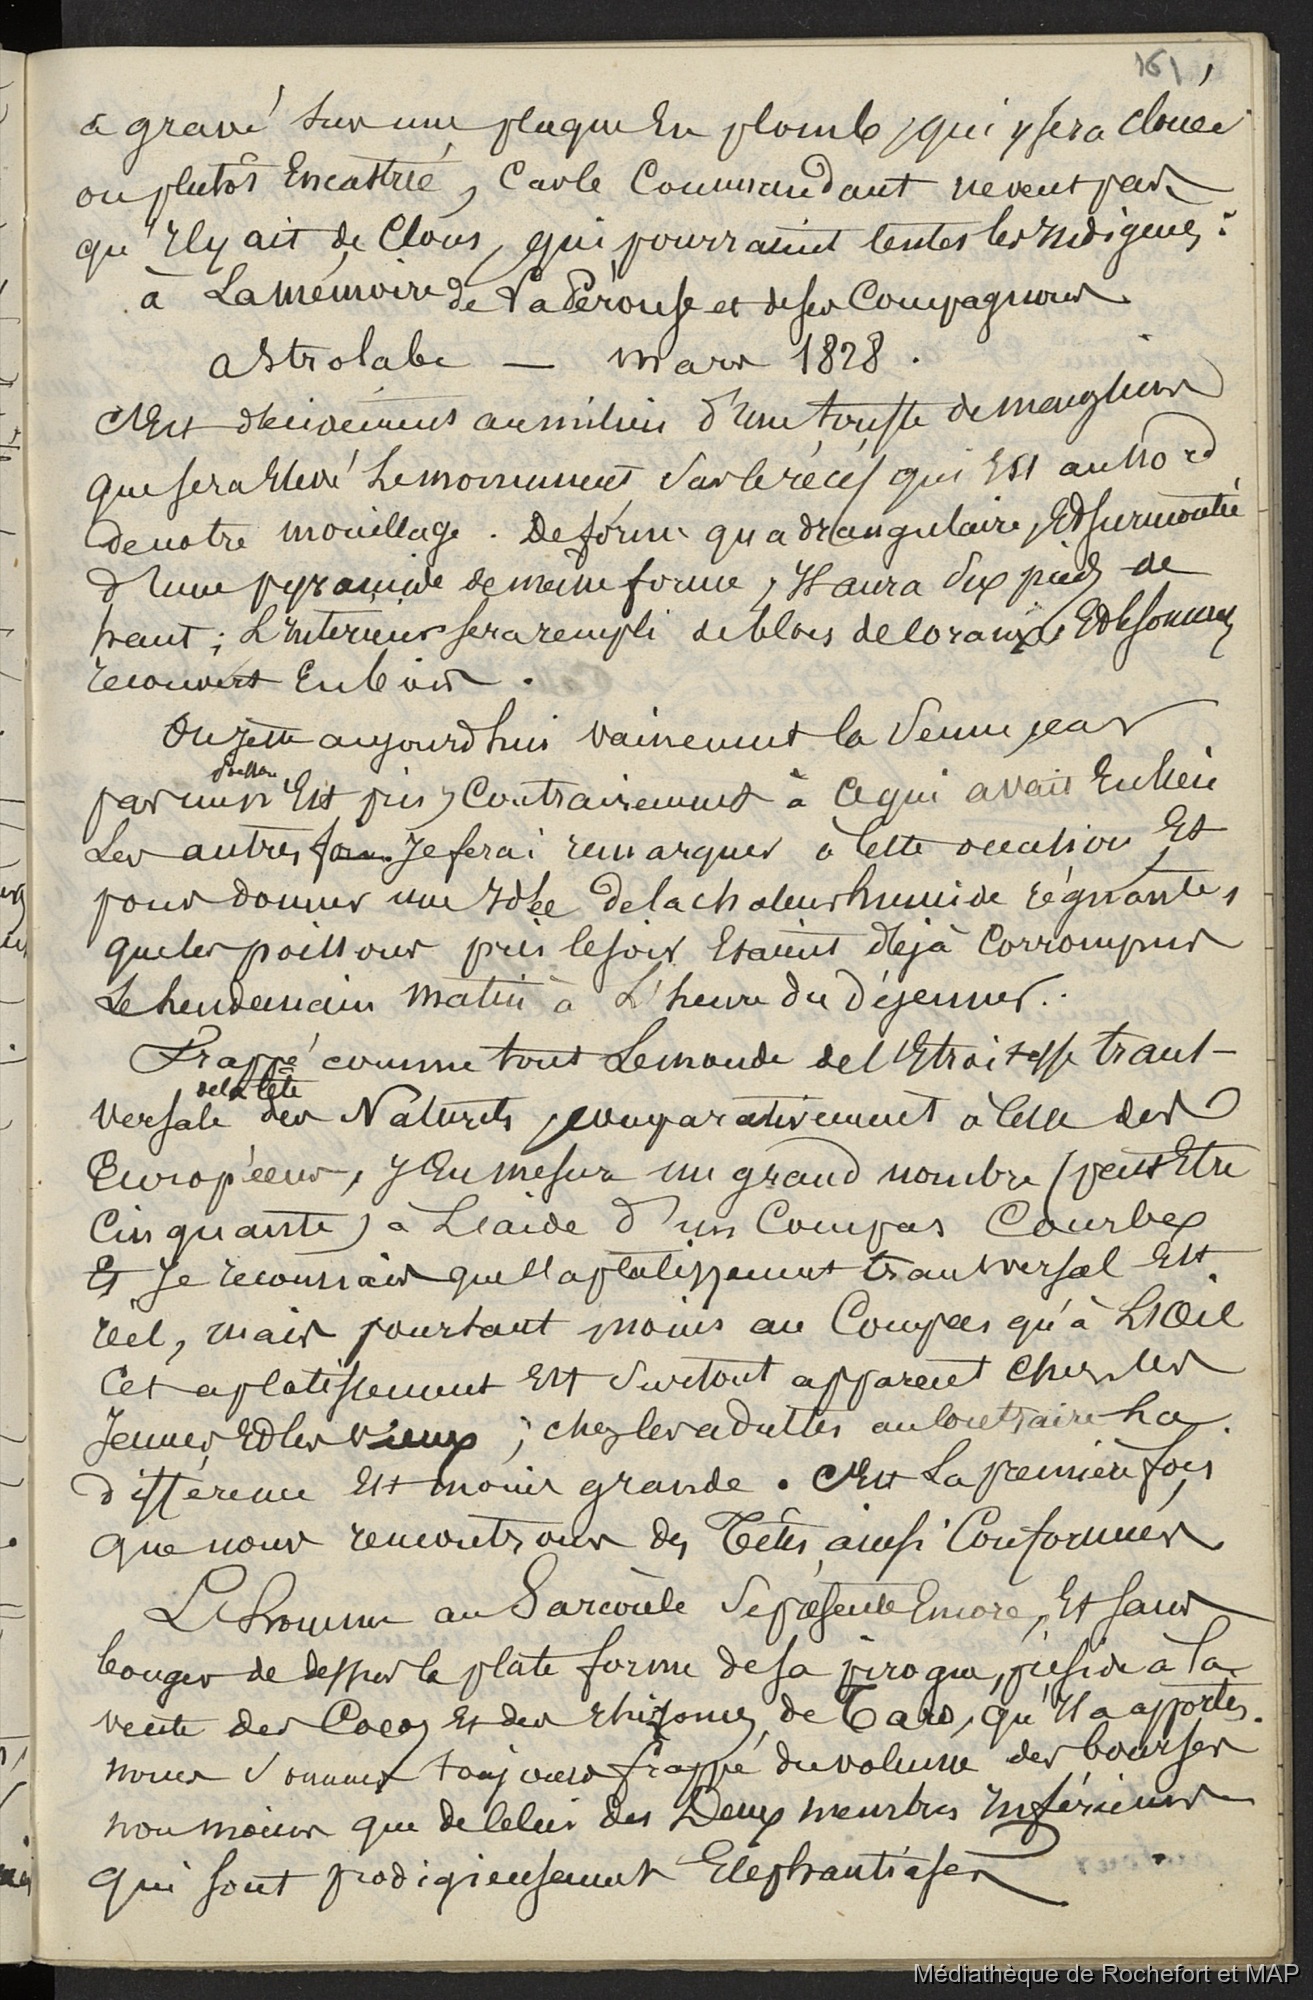 161
a gravé sur une plaque En plomb, qui y sera clouée
ou plutôt Encastrée, Car le Commandant ne veut pas
qu'Il y ait de Clous, qui pourraient tenter les Indigènes :
à La mémoire de La Pérouse et de ses Compagnons
Astrolabe — mars 1828.
C'Est décidément au milieu d'Une touffe de mangliers
que sera Elevé Le monument Sur le récif qui Est au nord
de notre mouillage. De forme quadrangulaire, Et surmonté
d'Une pyramide de même forme, Il aura dix pieds de
haut ; L'Interieur sera rempli de blocs de coraux, Et le sommet
recouvert En bois.
On Jette aujourd'hui vainement la Senne, car
pas un poisson n'Est pris, Contrairement à Ce qui avait Eu lieu
Les autres fois. Je ferai remarquer à Cette occasion Et
pour donner une Idée de la chaleur humide régnante,
que les poissons pris le soir Etaient déjà Corrompus
Le lendemain matin à L'heure du Déjeuner.
Frappé comme tout Le monde de l'Etroitesse trans-
versale de la tête des Naturels, comparativement à Celle des
Européens, J'En mesure un grand nombre (peut Etre
Cinquante) à L'aide d'un Compas Courbe
Et Je reconnais que l'aplatissement transversal Est
réel, mais pourtant moins au Compas qu'à L'Oeil
Cet aplatissement Est Surtout apparent chez les
Jeunes Et les vieux ; chez les adultes au Contraire La
différence Est moins grande. C'Est La première fois
que nous rencontrons des Têtes ainsi Conformées
L'homme au Sarcocèle Se présente Encore, Et sans
bouger de dessus la plate forme de sa pirogue, préside à la
vente des Cocos Et des rhizomes de Taro, qu'Il a apportés.
nous Sommes toujours frappé du volume des bourses
non moins que de Celui des Deux membres Inférieurs
qui sont prodigieusement Eléphantiasés
Médiathèque de Rochefort et MAP